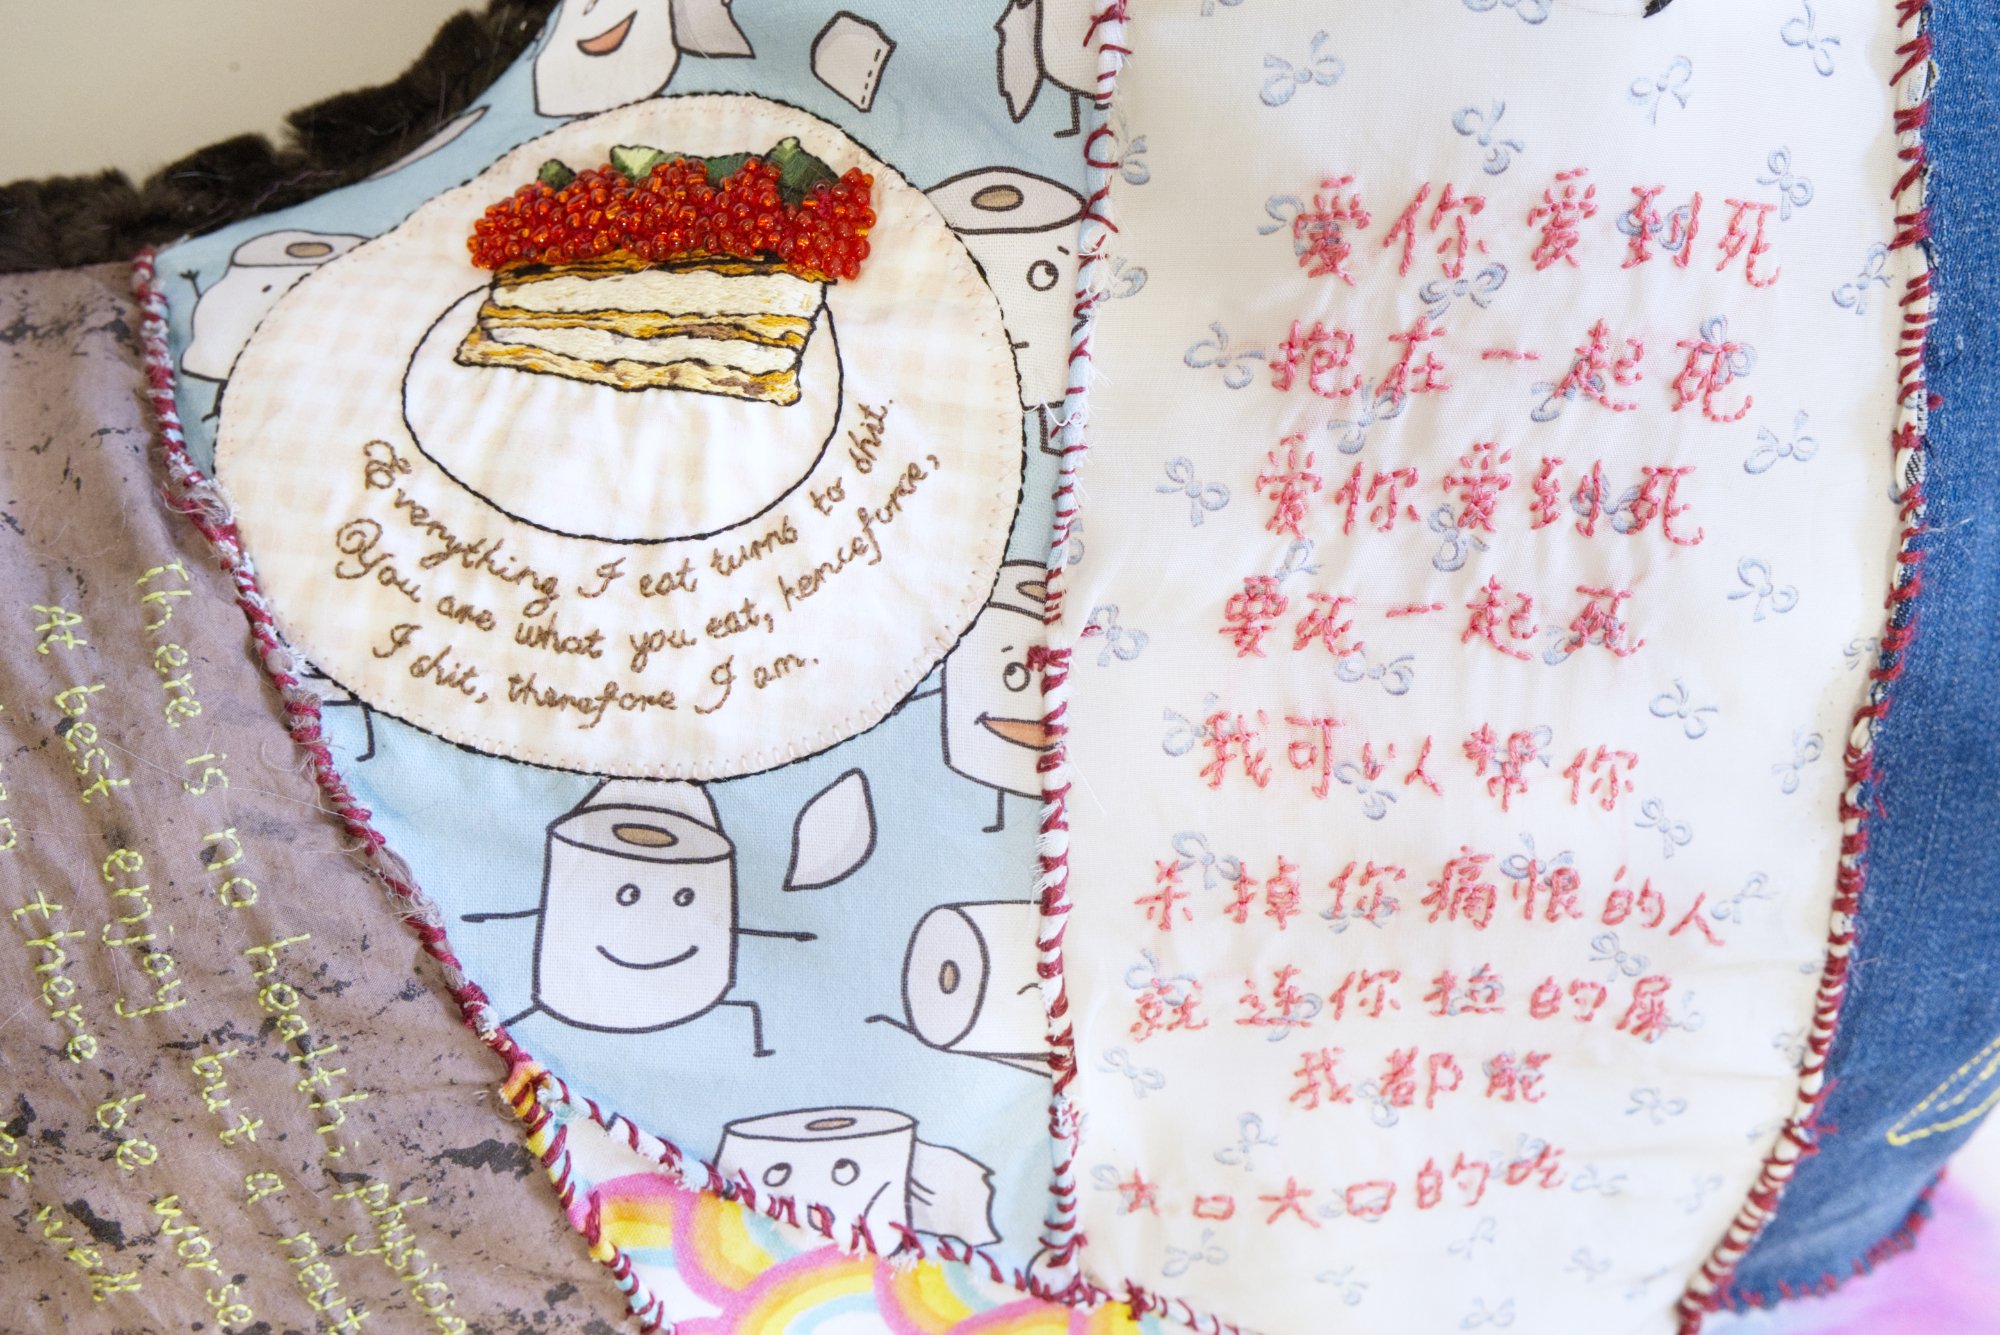 Everything I eat turns to shit.
You are what you eat, henceforse,
I shit, therefore I am.
there is no heath; physicia
At best enjoy but a neut
n there be worse
er wall
爱你爱到死
抱在一起死
爱你爱到死
要死一起死
我可以帮你
杀掉你痛恨的人
就连你拉的屎
我都能
大口大口的吃